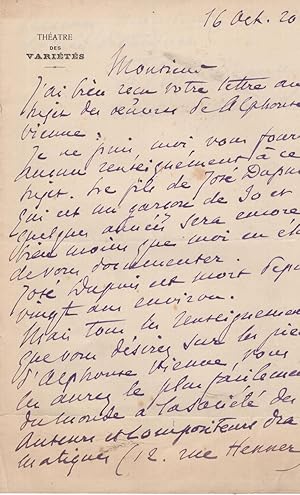 16 Oct. 20
THÉATRE
DES
VARIÉTÉS
Monsieur
J'ai bien reçu votre lettre au
sujet des œuvres de Alphonse
Vienne.
Je ne puis, moi, vous four
aucun renseignement à ce
sujet. Le fils de José Dupui
qui est un garçon de 30 et
quelques années sera encore
bien moins que moi en é
de vous documenter.
José Dupuis est mort depu
vingt ans environ.
Mais tous les renseignemen
que vous désirez sur les piè
d'Alphonse Vienne, vous
les aurez le plus facileme
du monde à la Société des
Auteurs et Compositeurs dra
matiques (12. rue Henner)